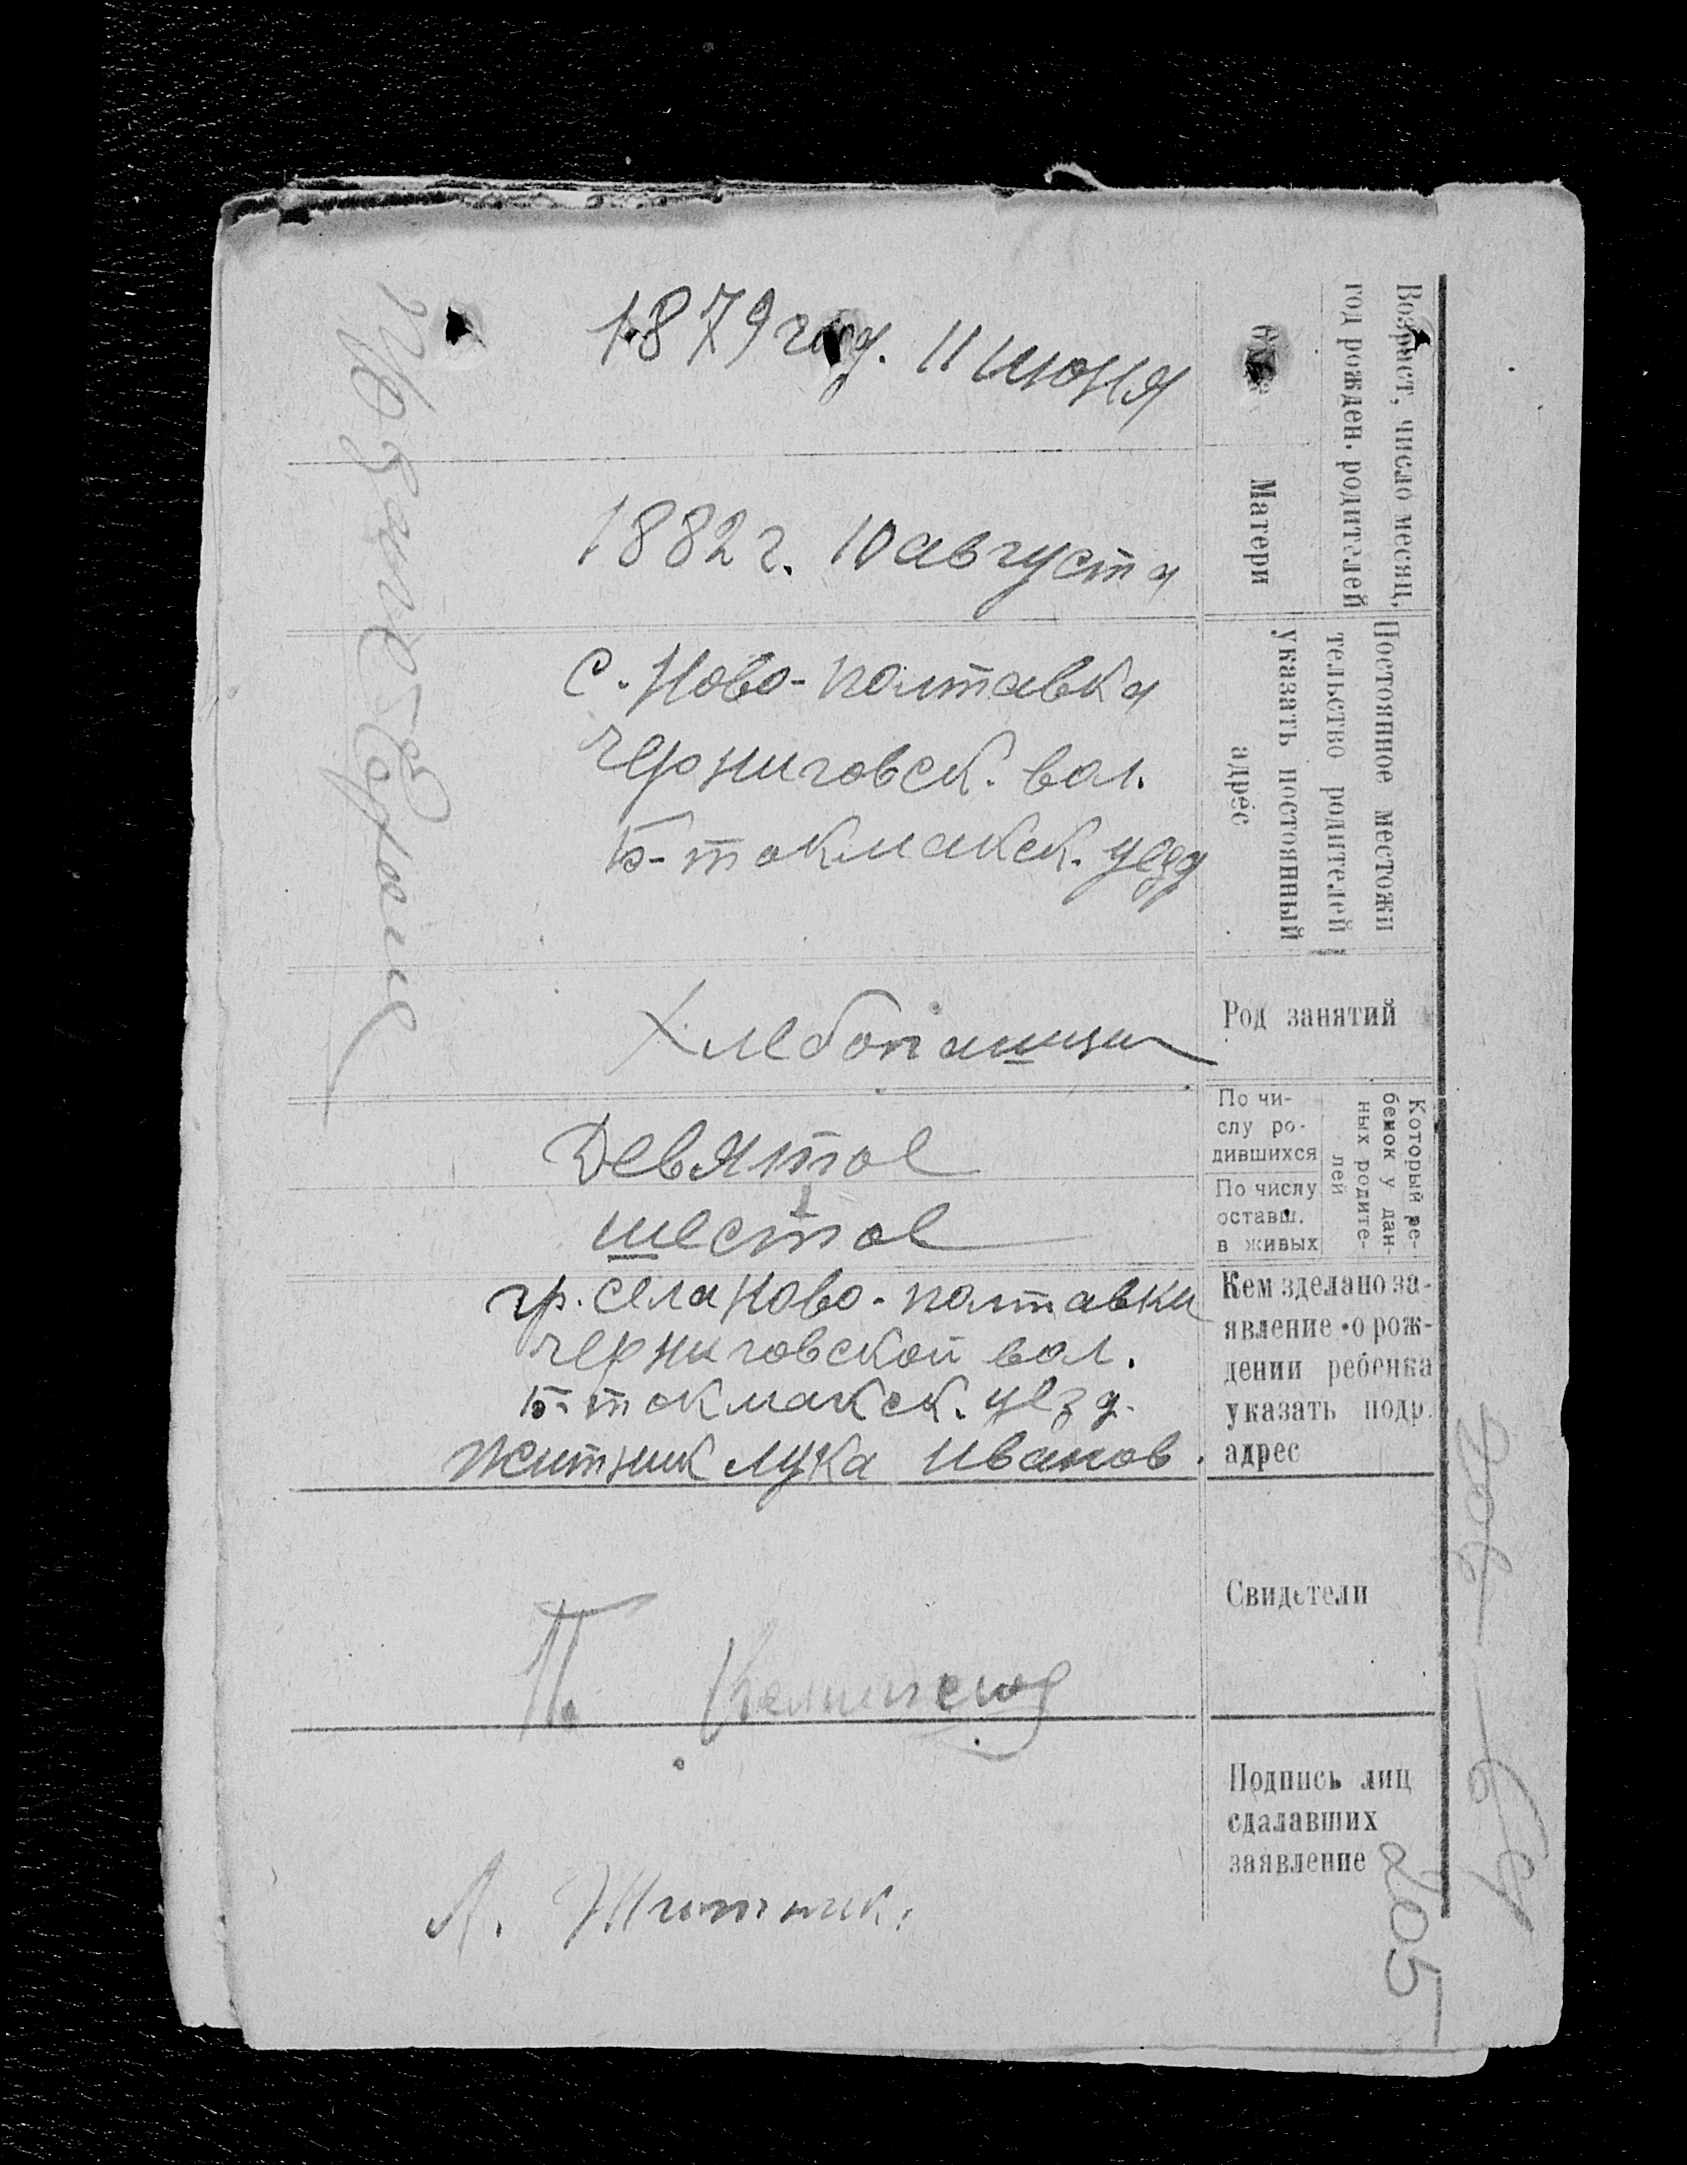 Возраст, число месяц,
год рожден. родителей
1879 год. 11 июня
Матери
1882 г. 10 августа
Постоянное местожи
тельство родителей
указать постоянный
адрес
с. Ново-полтавка
Черниговск. вол.
Б-токмакск. уезд
Род занятий
Хлебопашцы
Который ре-
бенок у дан-
ных родите-
лей
По чи-
слу ро-
дившихся
Девятое
По числу
оставш.
в живых
шестое
Кем зделано за-
явление о рож-
дении ребенка
указать подр.
адрес
гр. села Ново-полтавки
Черниговской вол.
Б-токмакск. уезд.
Житник Лука Иванов.
Свидетели
П.
Подпись лиц
сдалавших
заявление
Л. Житник.
205